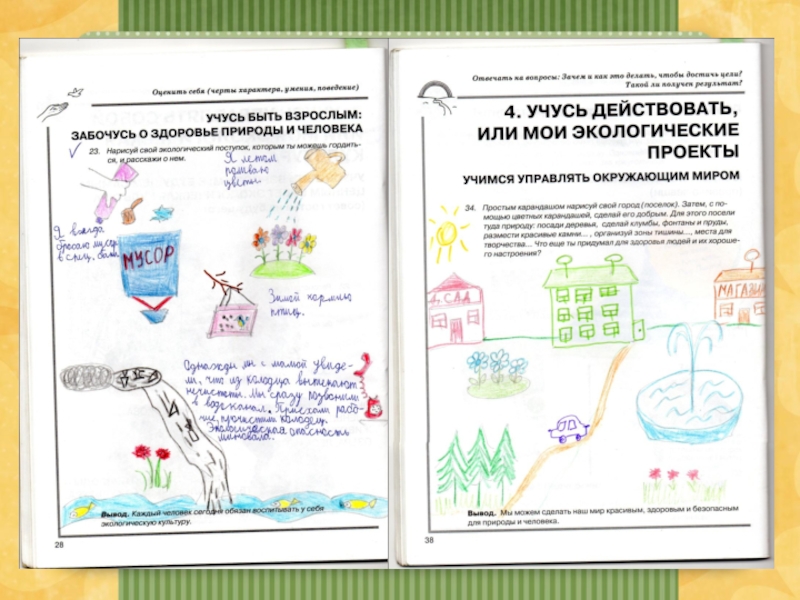 Оценить себя (черты характера, умения, поведение)
УЧУСЬ БЫТЬ ВЗРОСЛЫМ:
ЗАБОЧУСЬ О ЗДОРОВЬЕ ПРИРОДЫ И ЧЕЛОВЕКА
23. Нарисуй свой экологический поступок, которым ты можешь гордить-
ся, и расскажи о нем.
Я летом
поливаю
цветы.
Я всегда
бросаю мусор
в спец. баки
МУСОР
Зимой кормлю
птиц.
Однажды мы с мамой увиде-
ли, что из колодца вытекают
нечистоты. Мы сразу позвонили
в водоканал. Приехали рабо-
чие, прочистили колодец.
Экологическая опасность
миновала.
Вывод. Каждый человек сегодня обязан воспитывать у себя
экологическую культуру.
28
Отвечать на вопросы: Зачем и как это делать, чтобы достичь цели?
Такой ли получен результат?
4. УЧУСЬ ДЕЙСТВОВАТЬ,
ИЛИ МОИ ЭКОЛОГИЧЕСКИЕ
ПРОЕКТЫ
УЧИМСЯ УПРАВЛЯТЬ ОКРУЖАЮЩИМ МИРОМ
34. Простым карандашом нарисуй свой город (поселок). Затем, с по-
мощью цветных карандашей, сделай его добрым. Для этого посели
туда природу: посади деревья, сделай клумбы, фонтаны и пруды,
размести красивые камни... , организуй зоны тишины..., места для
творчества... Что еще ты придумал для здоровья людей и их хороше-
го настроения?
Д. САД
МАГАЗИН
Вывод. Мы можем сделать наш мир красивым, здоровым и безопасным
для природы и человека.
38